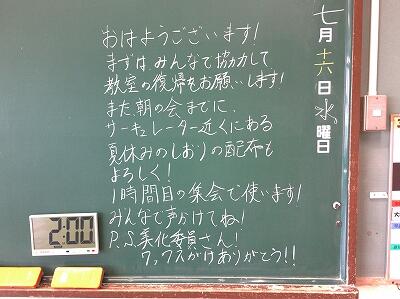 七月十六日水曜日
おはようございます!
まずはみんなで協力して
教室の復帰をお願いします!
また、朝の会までに、
サーキュレーター近くにある
夏休みのしおりの配布も
よろしく!
1時間目の集会で使います!
みんなで声かけてね!
P.S.美化委員さん!
ワックスがけありがとう!!
2:00